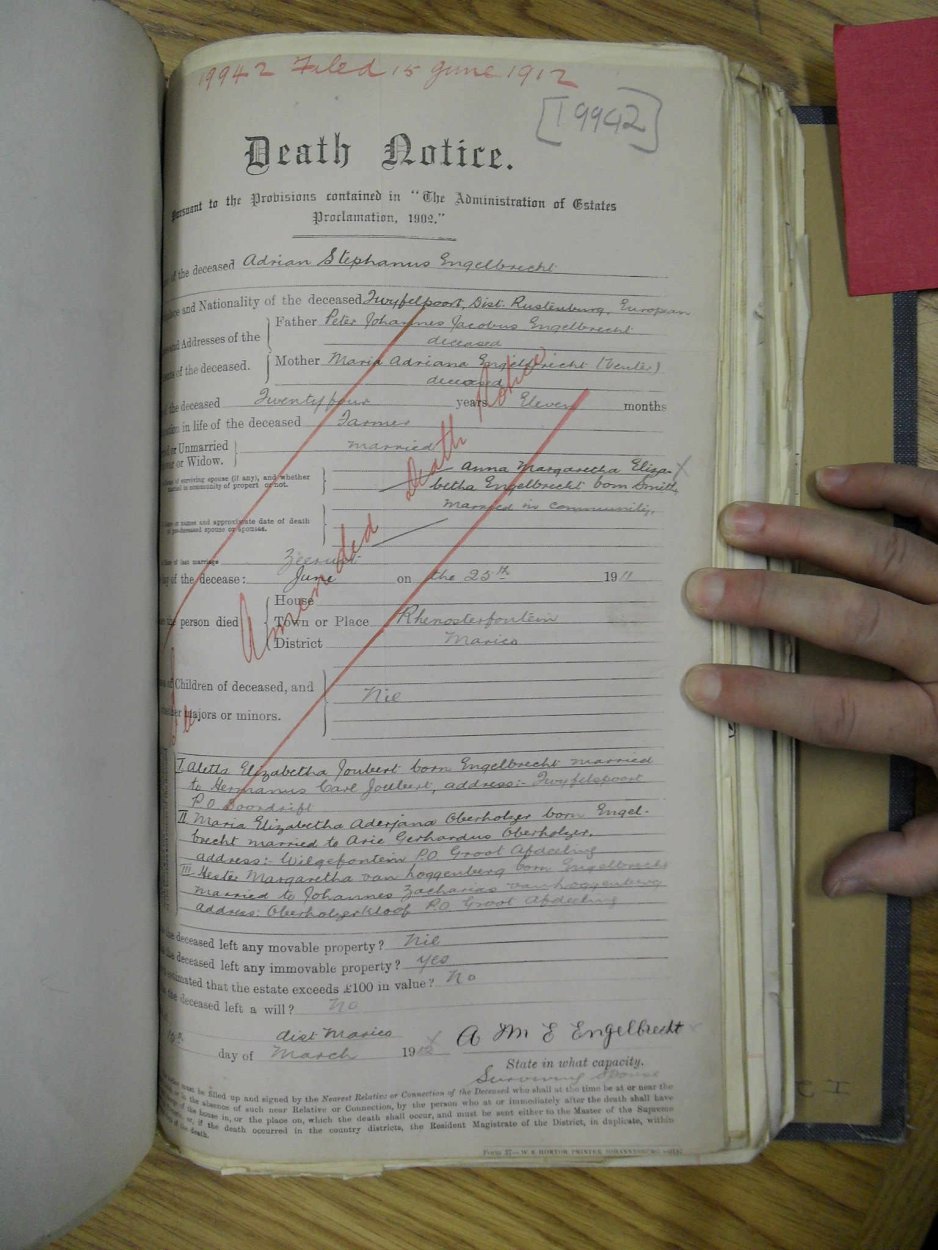 19942 Filed 15 June 1912
[19942]
Death Notice.
Pursuant to the Provisions contained in "The Administration of Estates
Proclamation, 1902."
of the deceased Adrian Stephanus Engelbrecht
and Nationality of the deceased Twyfelpoort, Dist. Rustenburg, European
Father Peter Johannes Jacobus Engelbrecht
and Addresses of the
deceased
of the deceased. Mother Maria Adriana Engelbrecht (Venter)
deceased
the deceased Twenty four years Eleven months
in life of the deceased Farmer
or Unmarried
married
or Widow.
of surviving spouse (if any), and whether Anna Margaretha Eliza-
married in community of propert or not. betha Engelbrecht born Smith,
married in community,
or names and approximate date of death
of pre-deceased spouse or spouses.
of last marriage Zeerust
of the decease: June on the 25th 1911
House
person died Town or Place Rhenosterfontein
District Marico
Children of deceased, and
Nil
majors or minors.
Amended Death Notice
I Aletta Elizabetha Joubert born Engelbrecht married
to Hermanus Carl Joubert, address:- Twyfelspoort
P.O. Doordrift
II Maria Elizabetha Aderjana Oberholzer born Engel-
brecht married to Arie Gerhardus Oberholzer.
address:- Wilgefontein P.O. Groot Afdeeling
III Hester Margaretha van hoggenberg born Engelbrecht
married to Johannes Zacharias van hoggenberg
address: Oberholzerkloof P.O Groot Afdeeling
the deceased left any movable property? Nil
the deceased left any immovable property? Yes
estimated that the estate exceeds £100 in value? No
the deceased left a will? No
dist Marico
day of March 1912 A M E Engelbrecht
State in what capacity.
Surviving Spouse
must be filled up and signed by the Nearest Relative or Connection of the Deceased who shall at the time be at or near the
or in the absence of such near Relative or Connection, by the person who at or immediately after the death shall have
of the house in, or the place on, which the death shall occur, and must be sent either to the Master of the Supreme
or, if the death occurred in the country districts, the Resident Magistrate of the District, in duplicate, within
of the death.